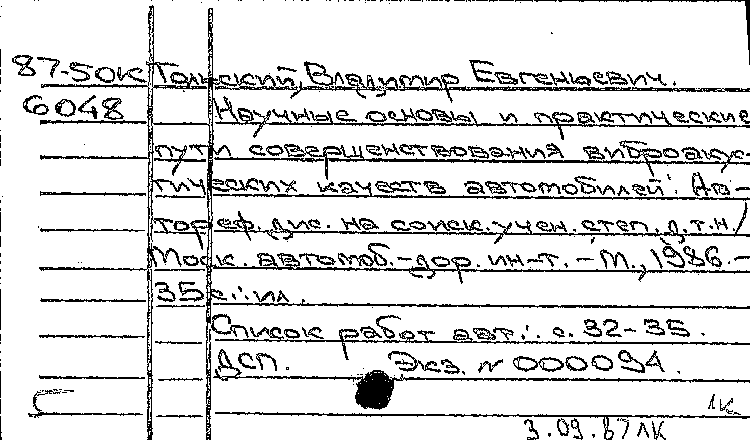 87-50к Тольский, Владимир Евгеньевич.
6048 Научные основы и практические
пути совершенствования виброакус-
тических качеств автомобилей: Ав-
тореф. дис. на соиск. учен. степ. д.т.н /
Моск. автомоб.-дор. ин-т. - М., 1986. -
35 с.: ил.
Список работ авт.: с. 32-35.
ДСП. Экз. № 000094.
1к
3.09.87 ЛК